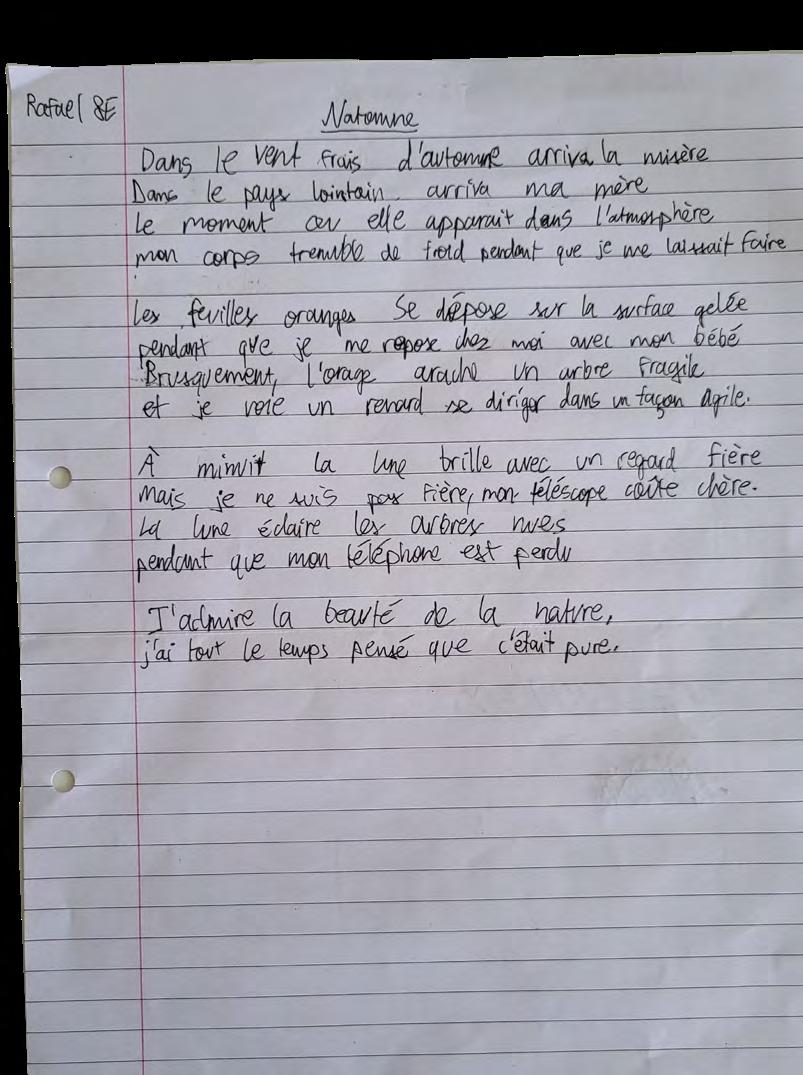 Rafael 8E
Natomne
Dans le vent frais d'automne arriva la misère
Dans le pays lointain arriva ma mère
Le moment ou elle apparait dans l'atmosphère
mon corps tremble de froid pendant que je me laissait faire
Les feuilles oranges se dépose sur la surface gelée
pendant que je me repose chez moi avec mon bébé
Brusquement, l'orage arache un arbre fragile
et je voie un renard se diriger dans un façon agile.
À minuit la lune brille avec un regard fière
Mais je ne suis pas fière, mon téléscope coûte chère.
La lune éclaire les arbres nues
pendant que mon téléphone est perdu
J'admire la beauté de la nature,
j'ai tout le temps pensé que c'était pure.